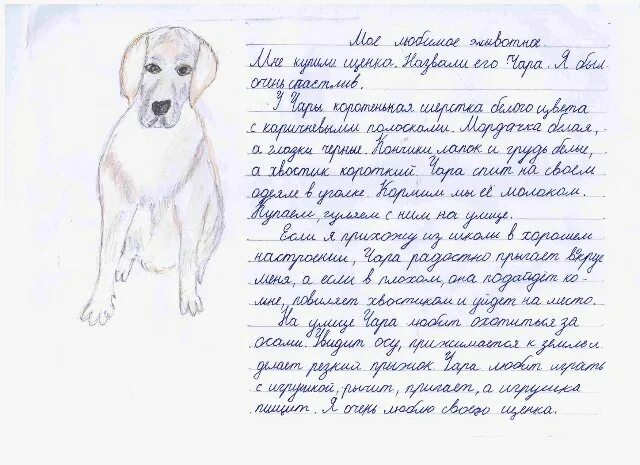 Мое любимое животное.
Мне купили щенка. Назвали его Чара. Я был
очень счастлив.
У Чары коротенькая шерстка белого цвета
с коричневыми полосками. Мордачка белая,
а глазки черные. Кончики лапок и грудь белые,
а хвостик короткий. Чара спит на своем
одеяле в уголке. Кормим мы её молоком.
Купаем, гуляем с ним на улице.
Если я прихожу из школы в хорошем
настроении, Чара радостно прыгает вкруг
меня, а если в плохом, она подайдёт ко
мне, повиляет хвостиком и уйдет на место.
На улице Чара любит охотиться за
осами. Увидит осу, прижимается к земле и
делает резкий прыжок. Чара любит играть
с игрушкой, рычит, прыгает, а игрушка
пищит. Я очень люблю своего щенка.